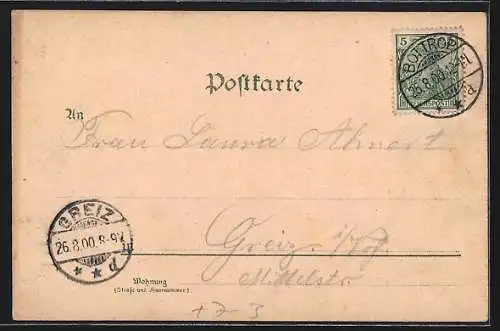 Postkarte
5
BOTTROP
26.8.00
REICHSPOST
An
Frau Laura Ahnert
GREIZ
26.8.00.8-9V.
in
Greiz i/V.
Mittelstr.
Wohnung
(Straße und Hausnummer)